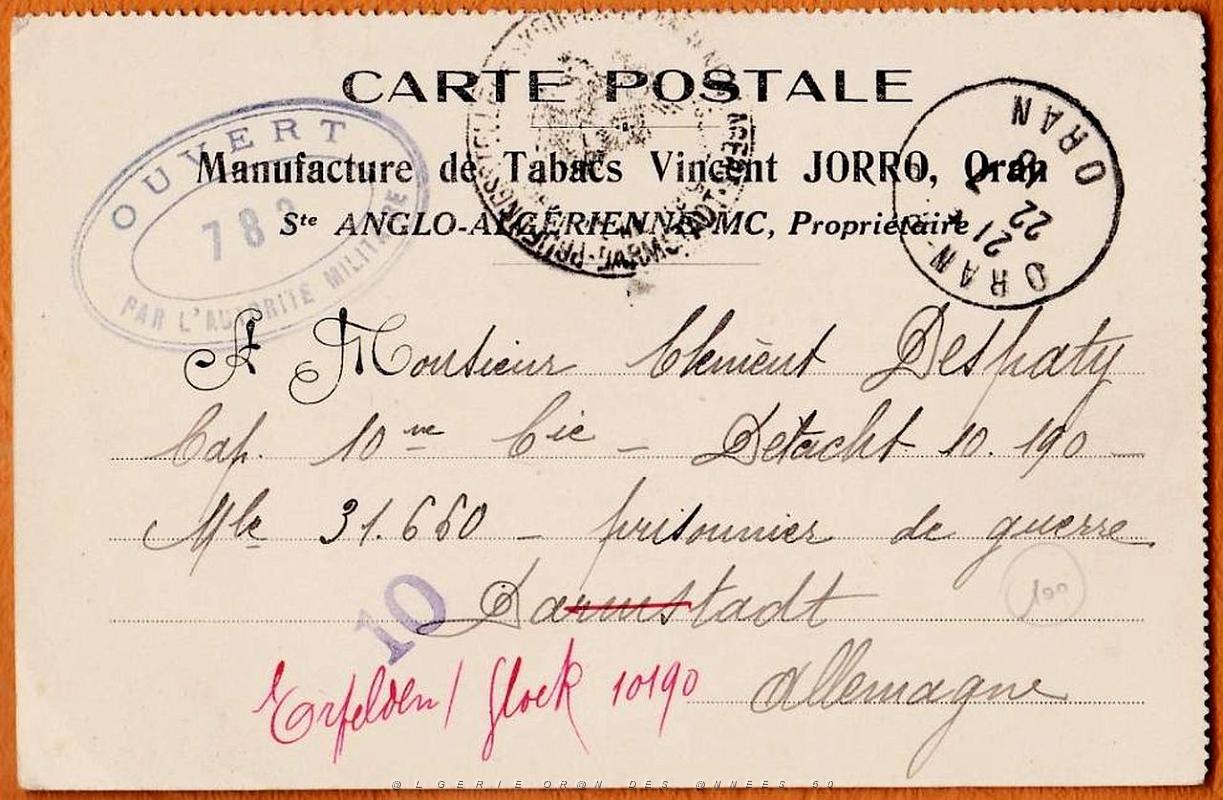 CARTE POSTALE
Manufacture de Tabacs Vincent JORRO, Oran
Ste ANGLO-ALGÉRIENNE MC, Propriétaire
OUVERT
PAR L'AUTORITÉ MILITAIRE
ORAN
21
22
ORAN
A Monsieur Clément Despaty
Cap. 10me Cie - Détacht 10.190
Mle 31.660 - prisonnier de guerre
10
Darmstadt
100
Allemagne
Erfelden/ Glock 10190
@LGERIE OR@N DES @NNEES 50